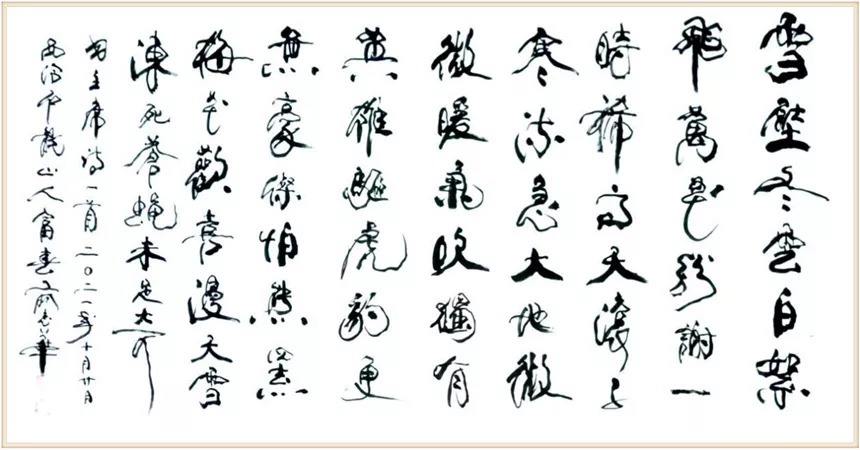 雪壓冬雲白絮
飛萬花紛謝一
時稀高天滾滾
寒流急大地微
微暖氣吹獨有
英雄驅虎豹更
無豪傑怕熊羆
梅花歡喜漫天雪
凍死蒼蠅未足奇
毛主席詩一首二〇二一年十月廿日
山人富春